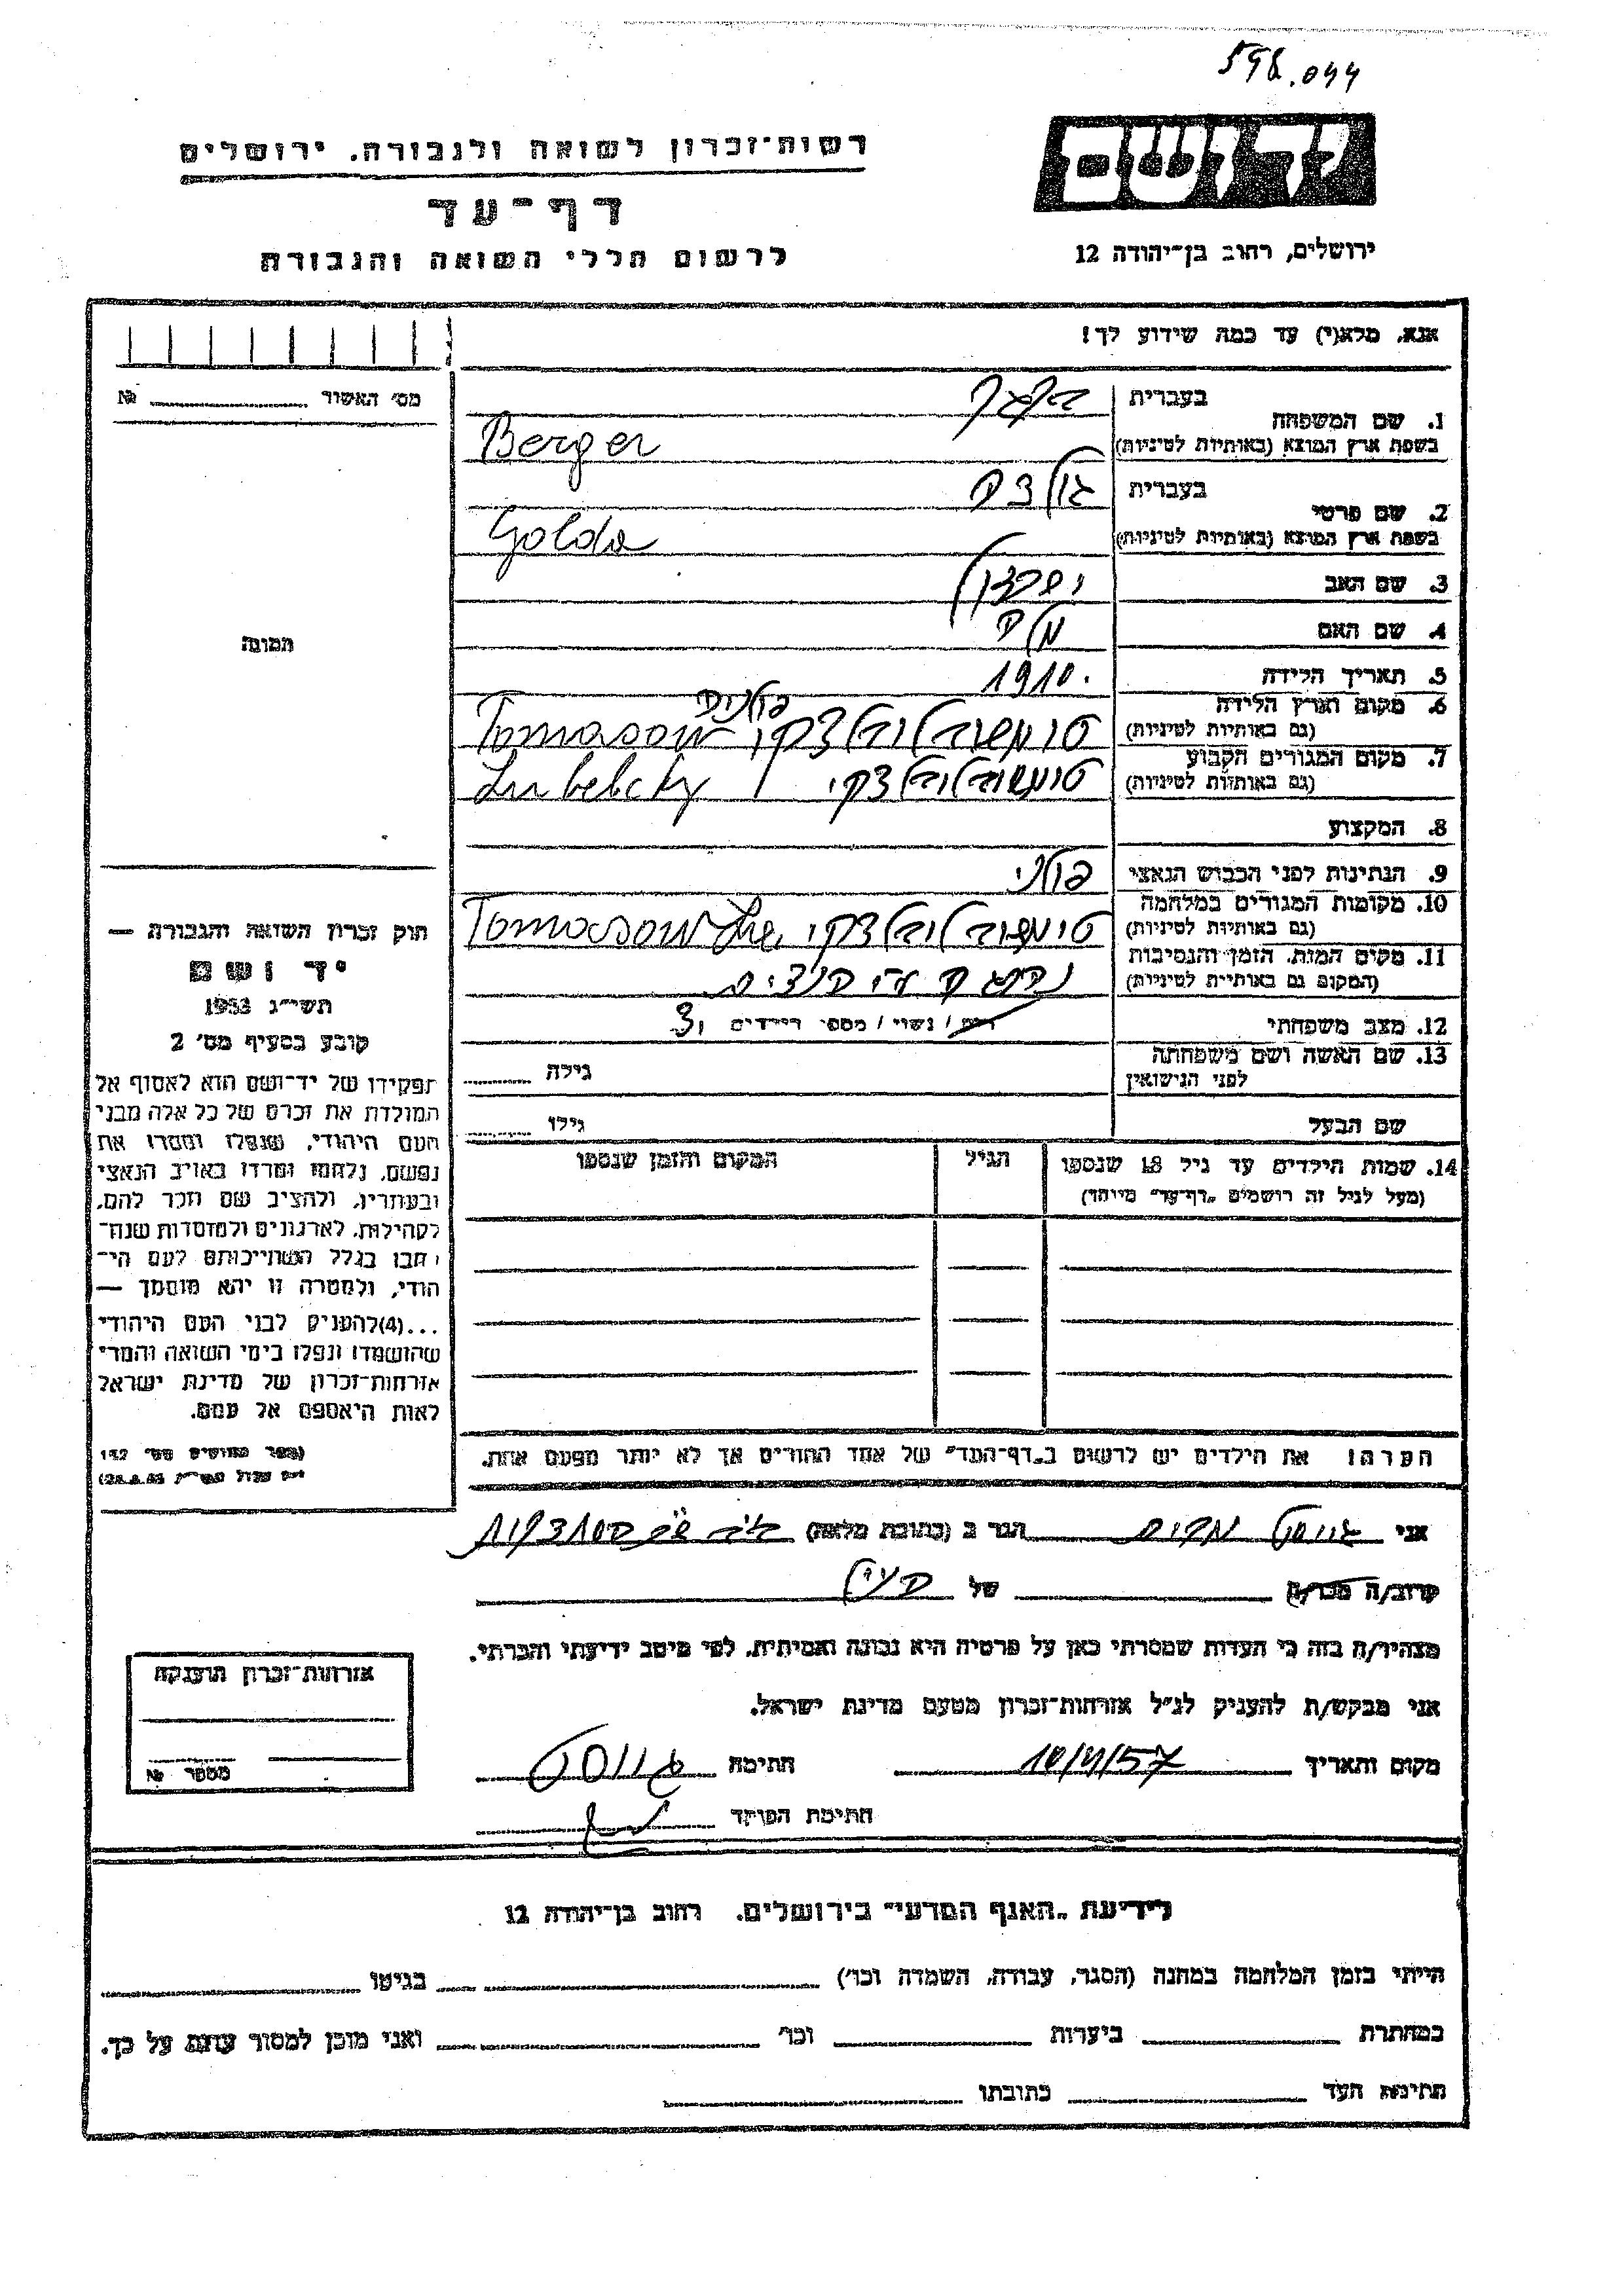 598.044
יד ושם
רשות־זכרון לשואה ולגבורה, ירושלים
דף־עד
לרשום חללי השואה והגבורה
ירושלים, רחוב בן־יהודה 12
אנא, מלא(י) עד כמה שידוע לך!
מס׳ האשור № ........
1. שם המשפחה
בעברית ברגר
בשפת ארץ המוצא (באותיות לטיניות) Berger
2. שם פרטי
בעברית גולדה
בשפת ארץ המוצא (באותיות לטיניות) Golda
3. שם האב
4. שם האם
5. תאריך הלידה 1910.
6. מקום וארץ הלידה
(גם באותיות לטיניות) טומשוב לובלסקי, Tomasow פולניה
7. מקום המגורים הקבוע
(גם באותיות לטיניות) טומשוב לובלסקי. Lubelcky
8. המקצוע
9. הנתינות לפני הכבוש הנאצי פולני
10. מקומות המגורים במלחמה
(גם באותיות לטיניות) טומשוב לובלסקי, Tomasow
11. מקום המות, הזמן והנסיבות
(המקום גם באותיות לטיניות)
12. מצב משפחתי רוק / נשוי / מספר הילדים 3
13. שם האשה ושם משפחתה
לפני הנישואין גילה ........
שם הבעל גילו ........
14. שמות הילדים עד גיל 18 שנספו
(מעל לגיל זה רושמים „דף־עד״ מיוחד)
הגיל
המקום והזמן שנספו
הערה: את הילדים יש לרשום ב„דף־העד״ של אחד ההורים אך לא יותר מפעם אחת.
תמונה
חוק זכרון השואה והגבורה —
יד ושם
תשי״ג 1953
קובע בסעיף מס׳ 2
תפקידו של יד־ושם הוא לאסוף אל
המולדת את זכרם של כל אלה מבני
העם היהודי, שנפלו ומסרו את
נפשם, נלחמו ומרדו באויב הנאצי
ובעוזריו, ולהציב שם וזכר להם,
לקהילות, לארגונים ולמוסדות שנח־
רבו בגלל השתייכותם לעם הי־
הודי, ולמטרה זו יהא מוסמך —
...(4)להעניק לבני העם היהודי
שהושמדו ונפלו בימי השואה והמרי
אזרחות־זכרון של מדינת ישראל
לאות היאספם אל עמם.
(ספר החוקים מס׳ 132
אני הגר ב (כתובת מלאה)
קרוב/ה מכר/ה של
מצהיר/ה בזה כי העדות שמסרתי כאן על פרטיה היא נכונה ואמיתית, לפי מיטב ידיעתי והכרתי.
אני מבקש/ת להעניק לנ״ל אזרחות־זכרון מטעם מדינת ישראל.
מקום ותאריך חתימה
חתימת הפוקד
אזרחות־זכרון הוענקה
מספר №
לידיעת „האגף המדעי״ בירושלים, רחוב בן־יהודה 12
הייתי בזמן המלחמה במחנה (הסגר, עבודה, השמדה וכו׳) ........ בגיטו ........
במחתרת ........ ביערות ........ וכו׳ ........ ואני מוכן למסור עדות על כך.
חתימת העד ........ כתובתו ........